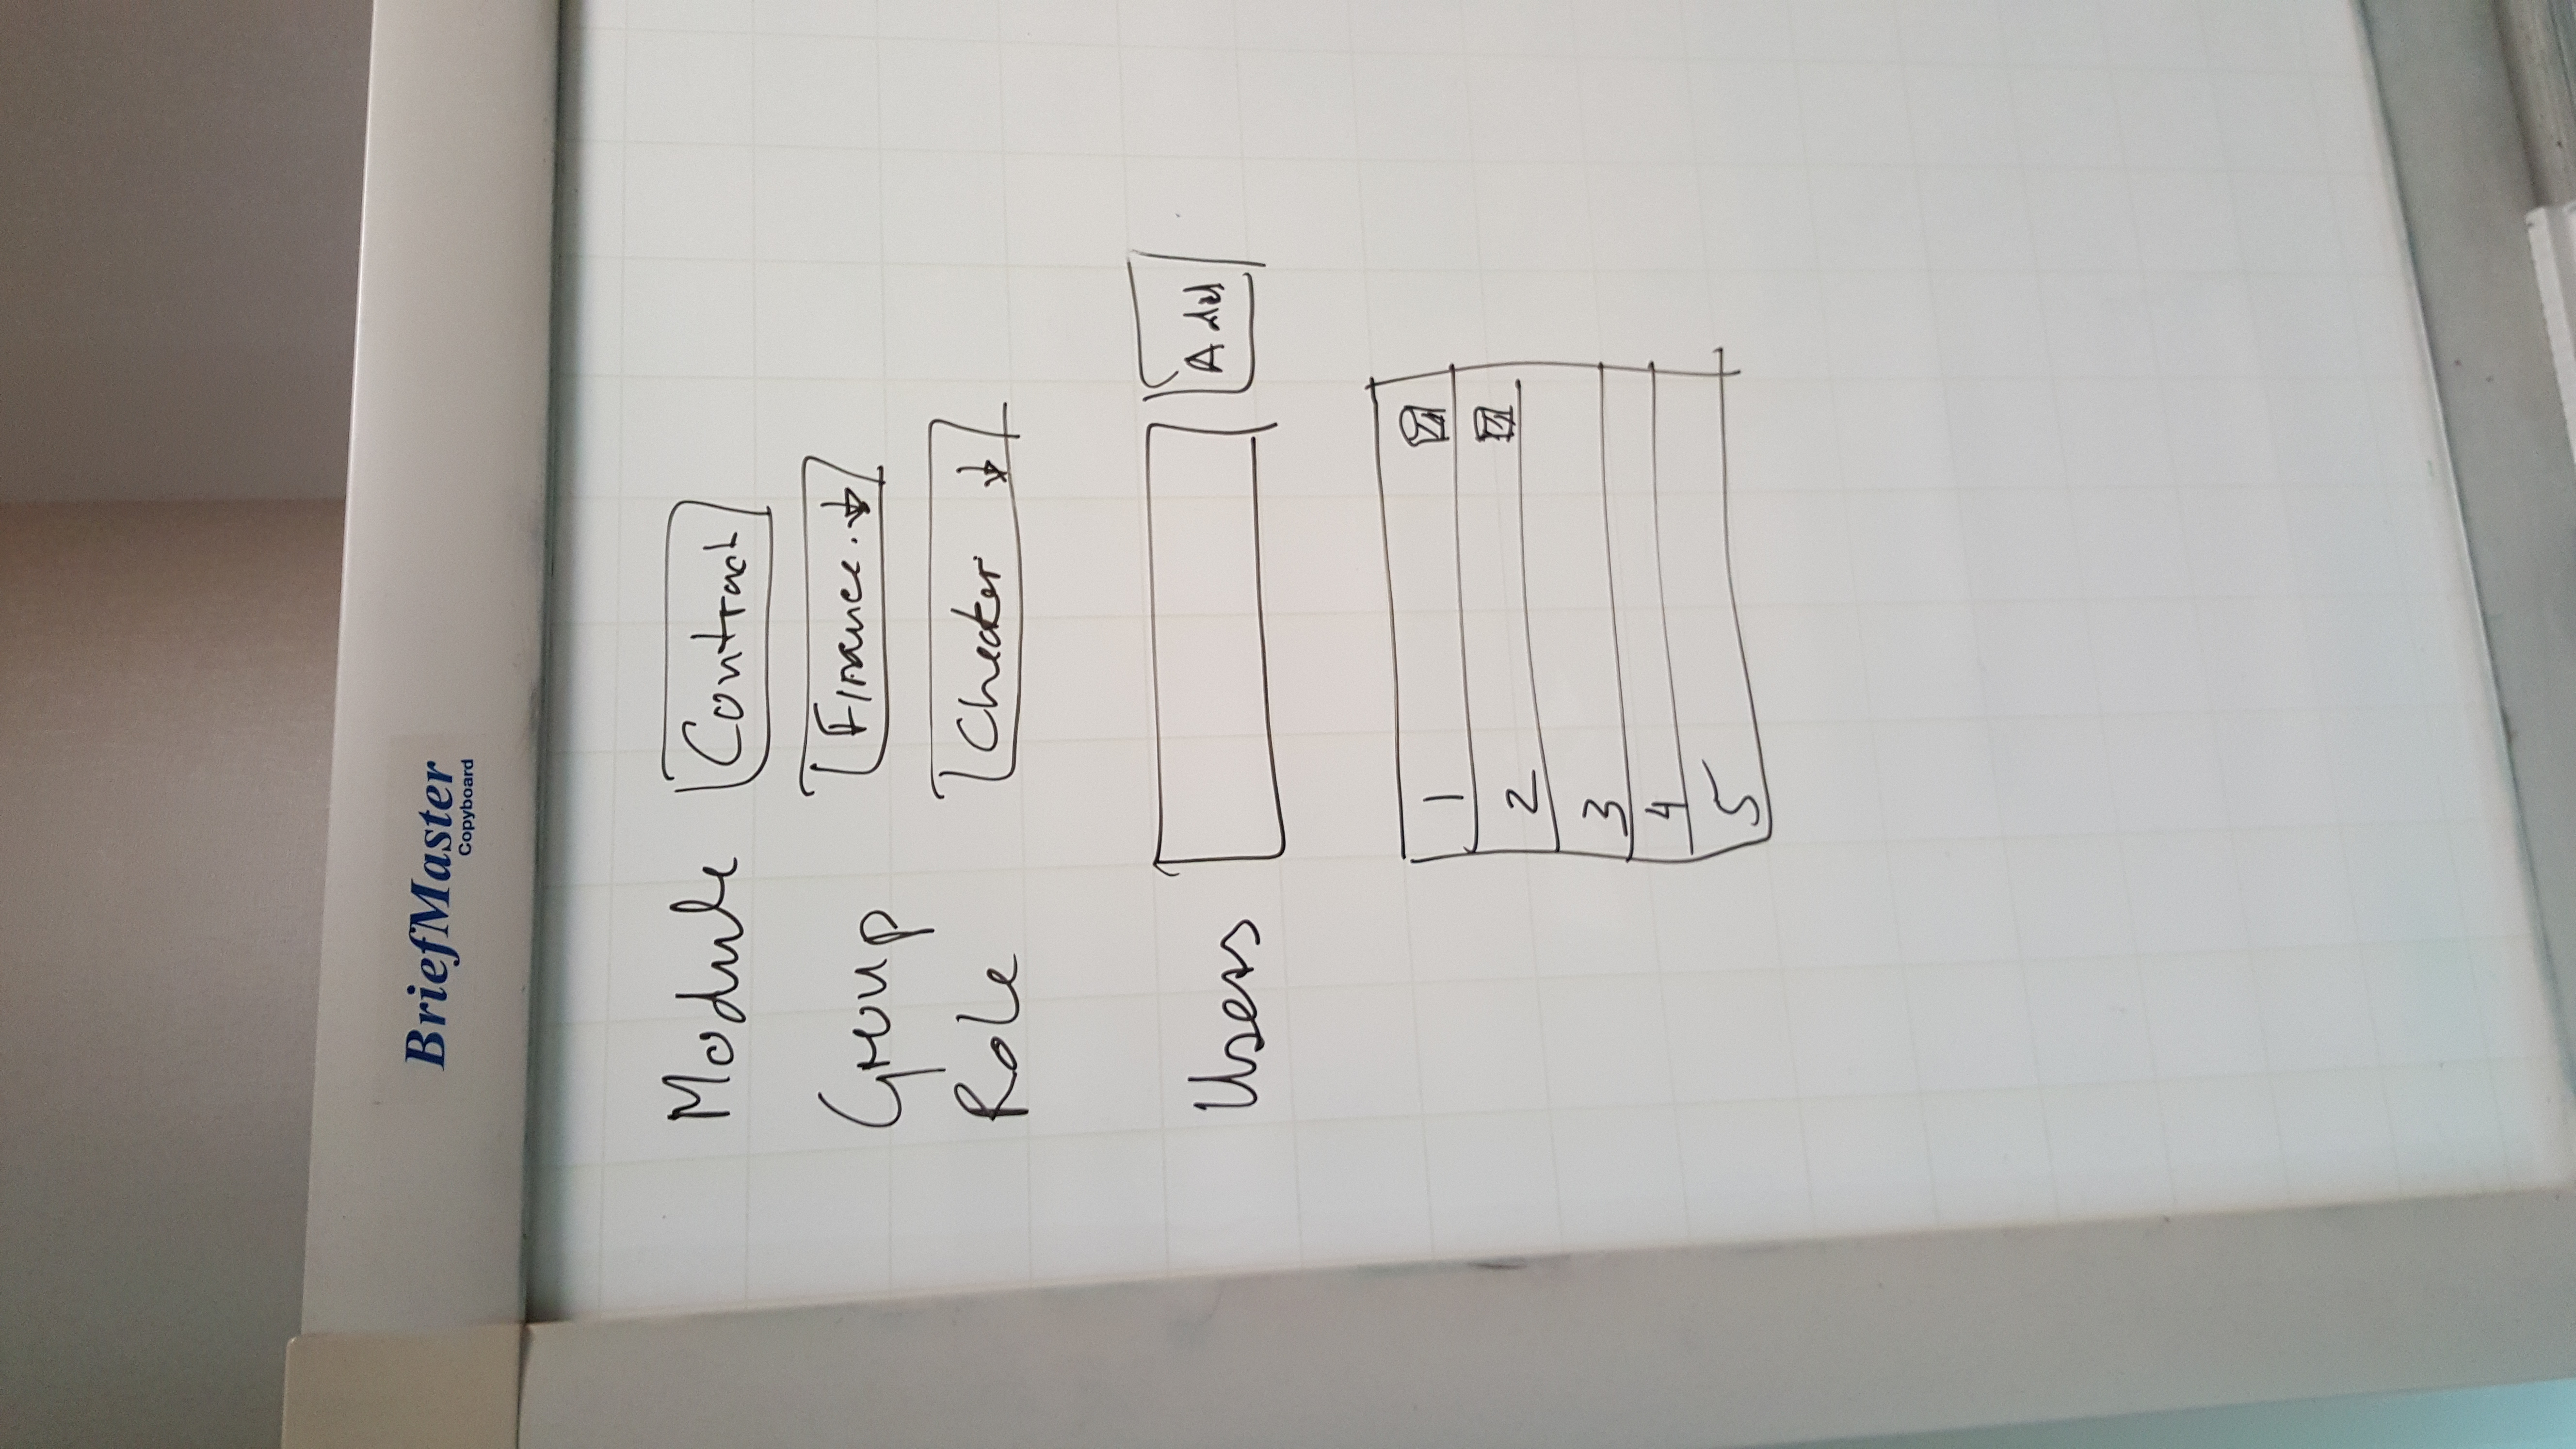 BriefMaster
Copyboard
Module Contract
Group Finance.
Role Checker
Users Add
1
2
3
4
5